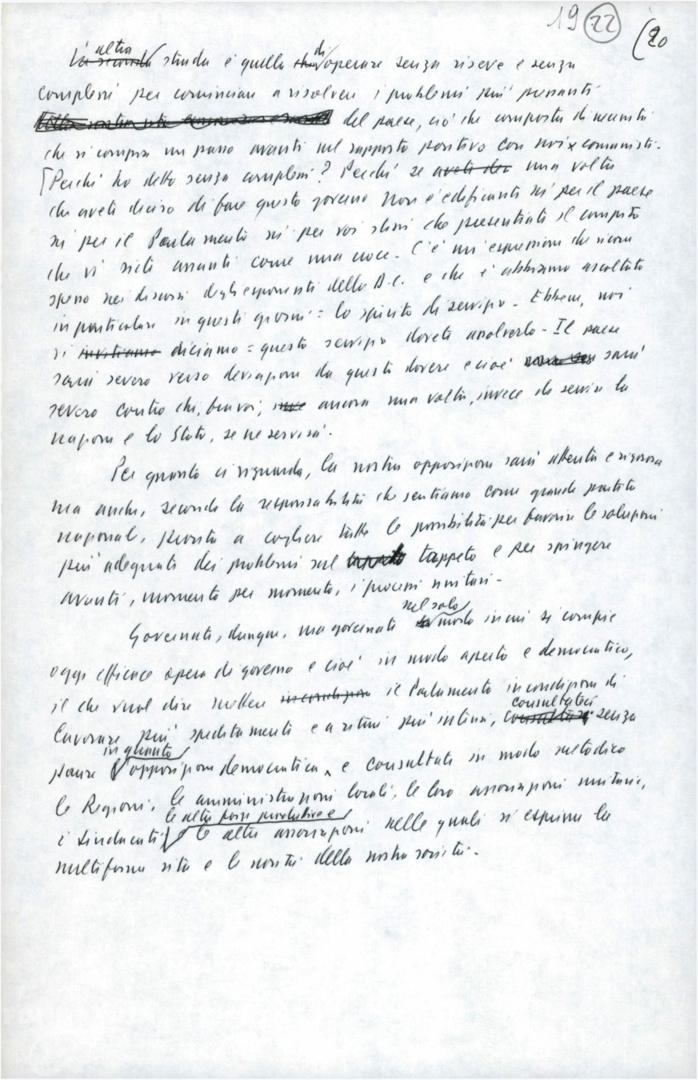 19 22 (20
L'altra strada è quella di operare senza riserve e senza
complessi per cominciare a risolvere i problemi più pesanti
del paese, ciò che comporta di necessità
che si compia un passo avanti nel rapporto positivo con noi comunisti.
Perché ho detto senza complessi? Perché se una volta
che avete deciso di fare questo governo non è edificante né per il paese
né per il Parlamento né per voi stessi che presentiate il compito
che vi siete assunti come una croce. C'è un'espressione che ricorre
spesso nei discorsi degli esponenti della D.C. e che abbiamo ascoltato
in particolare in questi giorni: lo spirito di servizio. Ebbene, noi
vi diciamo: questo servizio dovete assolverlo. Il paese
sarà severo verso deviazioni da questo dovere e cioè sarà
severo contro chi, fra voi, ancora una volta, invece di servire la
nazione e lo Stato, se ne servirà.
Per quanto ci riguarda, la nostra opposizione sarà attenta e rigorosa
ma anche, secondo la responsabilità che sentiamo come grande partito
nazionale, pronta a cogliere tutte le possibilità per favorire le soluzioni
più adeguate dei problemi sul tappeto e per spingere
avanti, momento per momento, i processi unitari.
Governate, dunque, ma governate nel solo modo in cui si compie
oggi efficace opera di governo e cioè in modo aperto e democratico,
il che vuol dire mettere il Parlamento in condizioni di
lavorare più speditamente e a ritmi più intensi, consultateci senza
paure in quanto opposizione democratica, e consultate in modo metodico
le Regioni, le amministrazioni locali, le loro associazioni unitarie,
i sindacati le altre forze produttive e le altre associazioni nelle quali si esprime la
multiforme vita e le novità della nostra società.